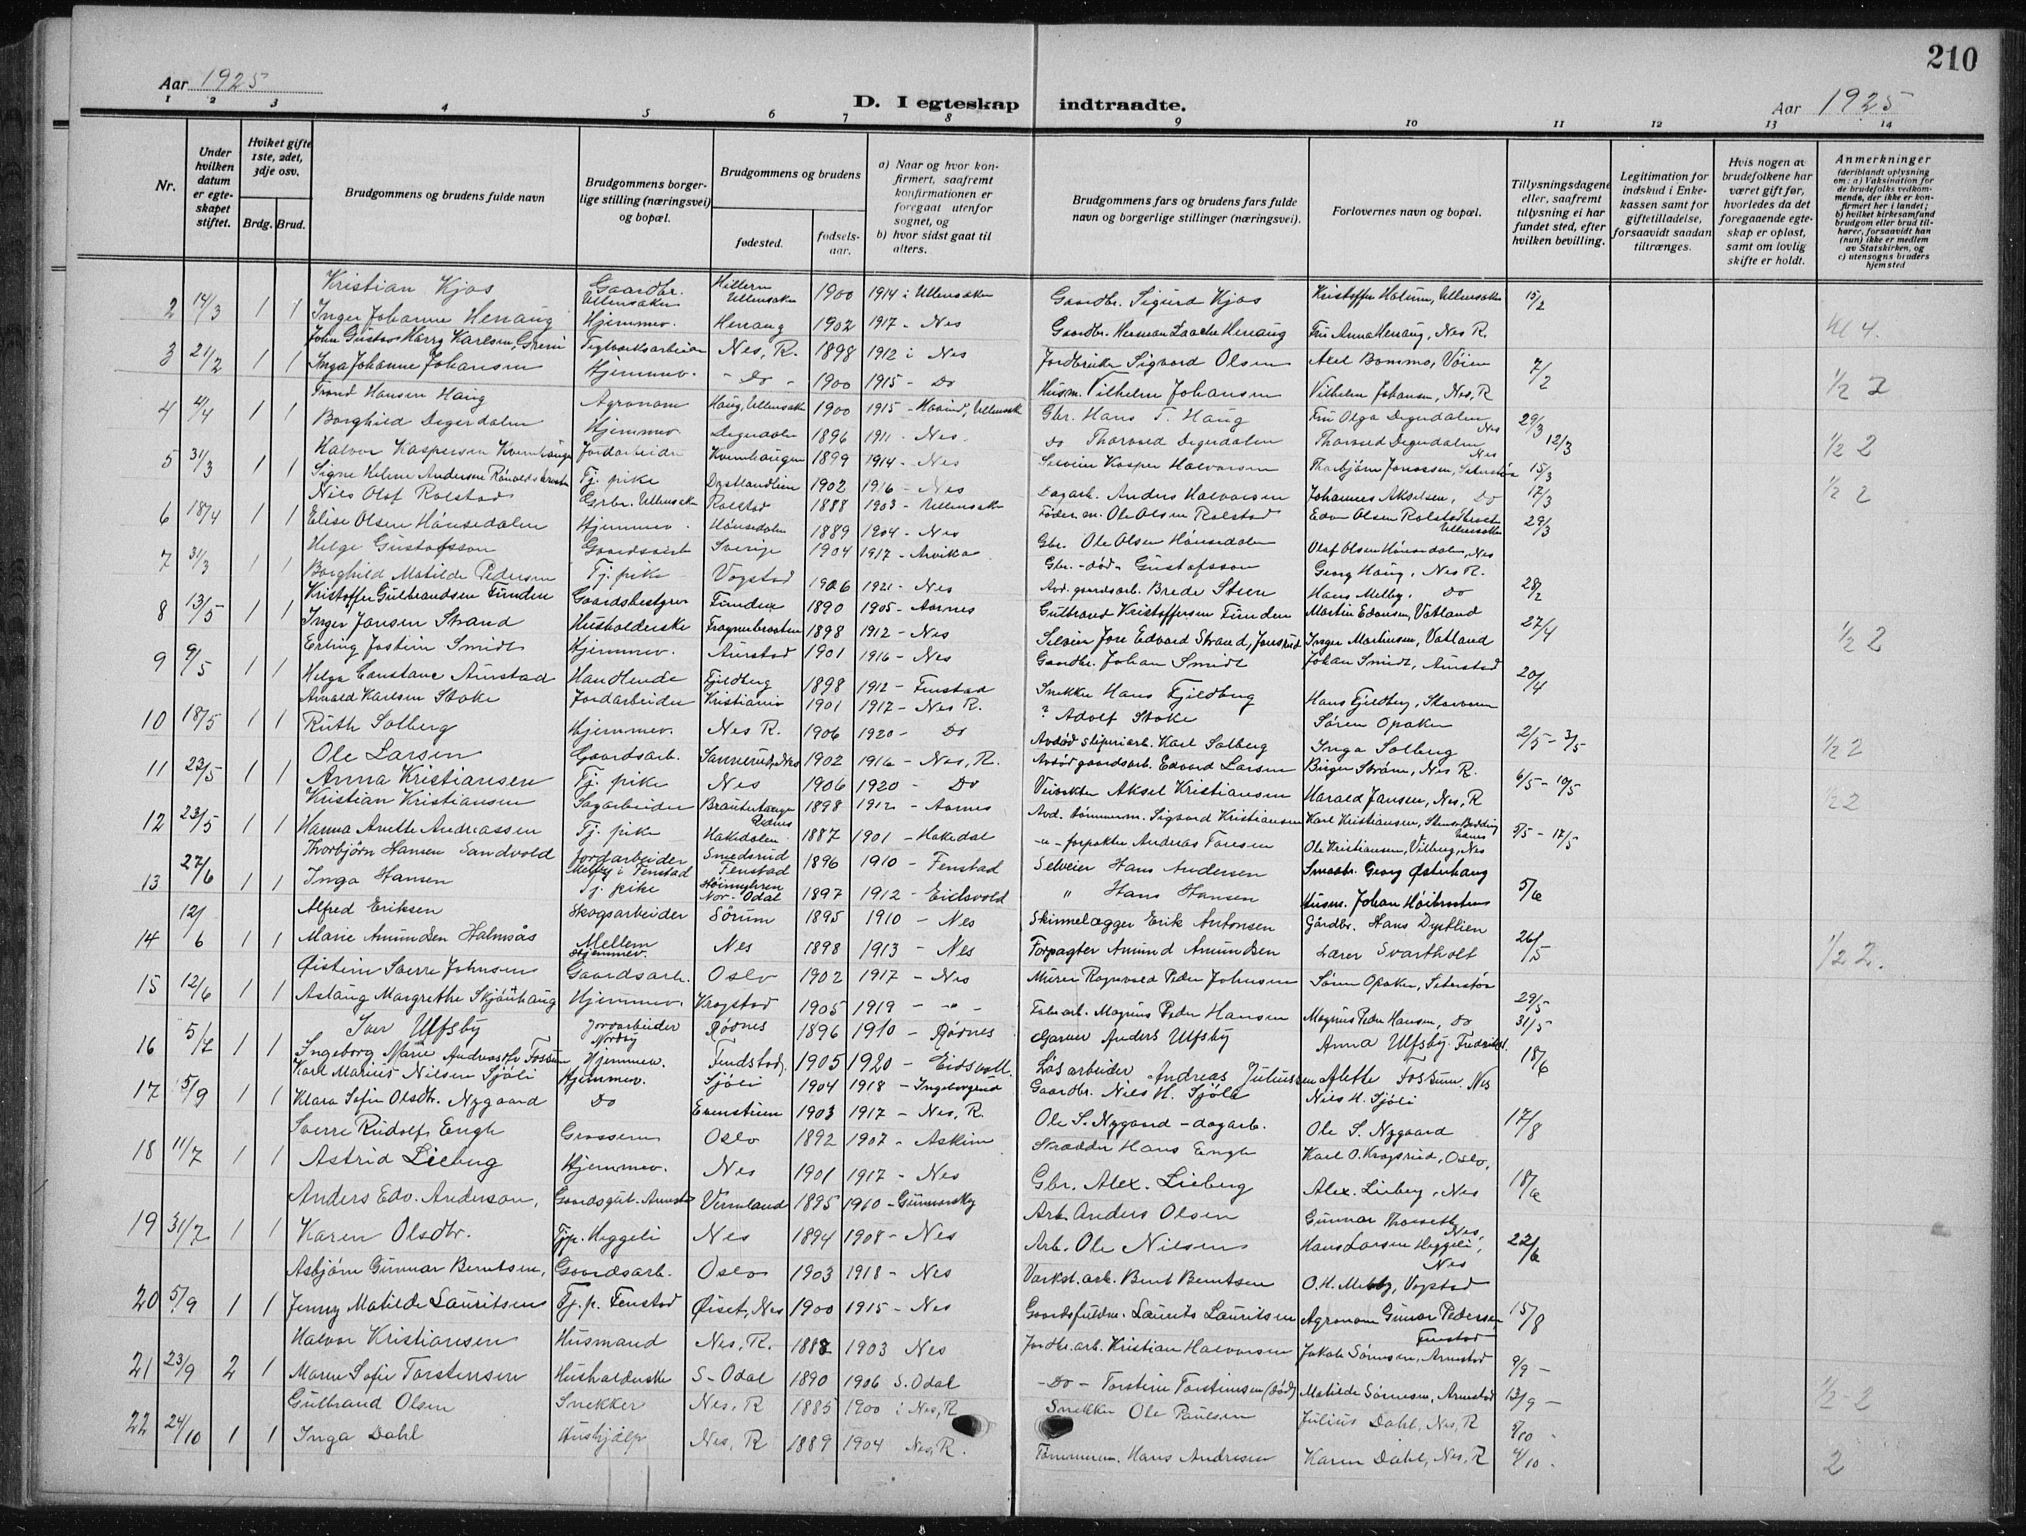 210
Aar 1925
D. I egteskap indtraadte.
Aar 1925
1 2 3 4 5 6 7 8 9 10 11 12 13 14
Nr.
Under hvilken datum er egteskapet stiftet.
Hvilket gifte 1ste, 2det, 3dje osv.
Brdg. Brud.
Brudgommens og brudens fulde navn
Brudgommens borgerlige stilling (næringsvei) og bopæl.
Brudgommens og brudens
fødested.
fødselsaar.
a) Naar og hvor konfirmert, saafremt konfirmationen er foregaat utenfor sognet, og
b) hvor sidst gaat til alters.
Brudgommens fars og brudens fars fulde navn og borgerlige stillinger (næringsvei).
Forlovernes navn og bopæl.
Tillysningsdagene eller, saafremt tillysning ei har fundet sted, efter hvilken bevilling.
Legitimation for indskud i Enkekassen samt for giftetilladelse, forsaavidt saadan tiltrænges.
Hvis nogen av brudefolkene har været gift før, hvorledes da det foregaaende egteskap er opløst, samt om lovlig skifte er holdt.
Anmerkninger (deriblandt oplysning om: a) Vaksination for de brudefolks vedkommende, der ikke er konfirmert her i landet; b) hvilket kirkesamfund brudgom eller brud tilhører, forsaavidt han (hun) ikke er medlem av Statskirken, og c) utensogns bruders hjemsted
Kristian Kjos Gaardbr. Ullensaker Hillern Ullensaker 1900 1914 i Ullensaker Gaardbr. Sigurd Kjos Kristoffer Holum, Ullensaker 15/2
2 14/3 1 1 Inger Johanne Henaug Hjemmev. Henaug 1902 1917 - Nes Gaardbr. Herman Laache Henaug Fru Anna Henaug, Nes R. Kl 4.
John Gustav Harry Karlsen, Greni Teglverksarbeider Nes, R. 1898 1912 i Nes Jordbruker Sigvard Olsen Axel Bommo, Vöien 7/2
3 21/2 1 1 Inga Johanne Johansen Hjemmev. - Do - 1900 1915 - Do Husm. Vilhelm Johansen Vilhelm Johansen, Nes, R 1/2 2
Trond Hansen Haug Agronom Haug, Ullensaker 1900 1915 - Ullensaker Gbr. Hans T. Haug Fru Olga Degerdalen Nes 29/3
4 4/4 1 1 Borghild Degerdalen Hjemmev. Degerdalen 1896 1911 - Nes. Do Thorvald Degerdalen Thorvald Degerdalen Nes 12/3 1/2 2
Halvor Kaspersen Kvernhaugen Jordarbeider Kvernhaugen 1899 1914 - Nes Selveier Kasper Halvorsen Thorbjörn Jonassen, Seterstöa 15/3
5 31/3 1 1 Signe Helene Andersen Tj. pike Dystlandlien 1902 1916 - Nes Dagarb. Anders Halvorsen Johannes Akselsen, Do 17/3 1/2 2
Niels Olaf Rolstad Grbr. Ullensaker Rolstad 1888 1903 - Ullensaker Föder.m. Ole Olsen Rolstad Edvin Olsen Rolstadbraaten Ullensaker 29/3
6 18/4 1 1 Elise Olsen Hönsedalen Hjemmev. Hönsedalen 1889 1904 - Nes Gbr. Ole Olsen Hönsedalen Olaf Olsen Hönsedalen, Nes
Helge Gustafsson Sverige 1904 1917 - Arvika Gbr. - död - Gustafsson Georg Haug, Nes R.
7 31/3 1 1 Borghild Matilde Pedersen Tj. pike Vogstad 1906 1921 - Nes Avd. gaardsarb. Brede Steen Hans Melby, Do 28/2
Kristoffer Gulbrandsen Funden Gaardsbestyrer Funden 1890 1905 - Aarnes Gulbrand Kristoffersen Funden Martin Edvinsen, Vatland
8 13/5 1 1 Inger Jonsen Strand Husholderske Frognerbraaten 1898 1912 - Nes Selveier Jore Edvard Strand, Jonsrud Inger Martinsen, Vatland 27/4 1/2 2
Erling Jostein Smidt Hjemmev. Aurstad 1901 1916 - Nes Gaardbr. Johan Smidt Johan Smidt, Aurstad
9 9/5 1 1 Helga Constane Aurstad Handlende Fjeldberg 1898 1912 - Fenstad Snekker Hans Fjeldberg Hans Fjeldberg, 20/4
Arvald Karlsen Stoke Jordarbeider Kristiania 1901 1917 - Nes R. ? Adolf Stoke Sören Opaker
10 18/5 1 1 Ruth Solberg Hjemmev. Nes R. 1906 1920 - Do Avdöd sliperiarb. Karl Solberg Inga Solberg 2/5 - 3/5 1/2 2
Ole Larsen Gaardsarb. Sannerud, Nes 1902 1916 - Nes, R. Avdöd gaardsarb. Edvard Larsen Birger Ström, Nes R.
11 23/5 1 1 Anna Kristiansen Tj. pike Nes 1906 1920 - Do Veivokter Aksel Kristiansen Harald Jansen, Nes, R 6/5 - 10/5 1/2 2
Kristian Kristiansen Sagarbeider 1898 1912 - Aarnes Avd. tömmerm. Sigvard Kristiansen Karl Kristiansen,
12 23/5 1 1 Hanna Anette Andreassen Tj. pike Hakedalen 1887 1901 - Hakedal - " - forpakter Andreas Toresen Ole Kristiansen, Vilberg, Nes 8/5 - 17/5
Thorbjörn Hansen Sandvold Jordarbeider Melby i Fenstad Smedsrud Fenstad 1896 1910 - Fenstad Selveier Hans Andersen Smaabr. Georg Østerhaug
13 27/6 1 1 Inga Hansen Tj. pike Höimyhren Nor. Odal 1897 1912 - Eidsvold " Hans Hansen Husm. Johan Höibraaten 5/6
Alfred Eriksen Skogsarbeider Sörum 1895 1910 - Nes Skinnelægger Erik Antonsen Gårdbr. Hans Dystlien
14 12/6 1 1 Marie Amundsen Holmsås Mellem Hjemmev. Nes 1898 1913 - Nes Forpagter Amund Amundsen Lærer Svartholt 26/5 1/2 2.
Øistein Sverre Johnsen Gaardsarb. Oslo 1902 1917 - Nes Murer Ragnvald Peder Johnsen Sören Opaker, Seterstöa
15 12/6 1 1 Aslaug Margrethe Skjönhaug Hjemmev. Vragstad 1905 1919 - " - Fabr.arb. Magnus Peder Hansen Magnus Peder Hansen, Do 29/5 31/5
Iver Ulfsby Jordarbeider Nordby Rödnes 1896 1910 - Rödnes Garver Anders Ulfsby Anna Ulfsby Fredrikst.
16 5/7 1 1 Ingeborg Marie Andreasdtr Fossum Hjemmev. Fundstad, 1905 1920 - Eidsvoll Lösarbeider Andreas Juliussen Alette Fossum, Nes 18/6
Karl Marius Nilsen Sjöli Hjemmev. Sjöli 1904 1918 - Ingeborgrud Gaardbr. Niels H. Sjöli Niels H. Sjöli
17 5/9 1 1 Klara Sofie Olsdtr. Nygaard Do Evenstuen 1903 1917 - Nes, R. Ole S. Nygaard - dagarb. Ole S. Nygaard 17/8
Sverre Rudolf Engh Grosserer Oslo 1892 1907 - Askim Skrædder Hans Engh Karl O. Krogsrud, Oslo,
18 11/7 1 1 Astrid Lieberg Hjemmev. Nes 1901 1917 - Nes Gbr. Alex. Lieberg Alex. Lieberg, Nes 18/6
Anders Edv. Anderson, Gaardsgut. Vermland 1895 1910 - Gunnarskog Arb. Anders Olsen Gunnar Thoreseth Nes,
19 31/7 1 1 Karen Olsdtr. Tjp. Heggeli Nes 1894 1908 - Nes Arb. Ole Nilsen Hans Larsen Heggeli, Nes 22/6
Asbjörn Gunnar Berntsen, Gaardsarb. Oslo 1903 1918 - Nes Verkst.arb. Bernt Berntsen O.H. Melby, Vogstad
20 5/9 1 1 Jenny Matilde Lauritsen Tj. p. Fenstad Øiset, Nes 1900 1915 - Nes Gaardsfuldm. Laurits Lauritsen Agronom Gunar Pedersen Fenstad 15/8
Halvor Kristiansen Husmand Nes, R. 1888 1903 Nes Jordbr.arb. Kristian Halvorsen Jakob Sörensen, Armstad
21 23/9 2 1 Maren Sofie Torstensen Husholderske S-Odal 1890 1906 S. Odal - Do - Torstein Torstensen (död) Matilde Sörensen, Armstad 9/9 - 13/9 - 1/2 - 2
Gulbrand Olsen Snekker Nes, R 1885 1900 i Nes, R Snekker Ole Paulsen Julius Dahl, Nes, R
22 24/10 1 1 Inga Dahl Hushjælp Nes, R 1889 1904 Nes, R. Tømmerm. Hans Andresen Karen Dahl, Nes, R 4/10 - 2